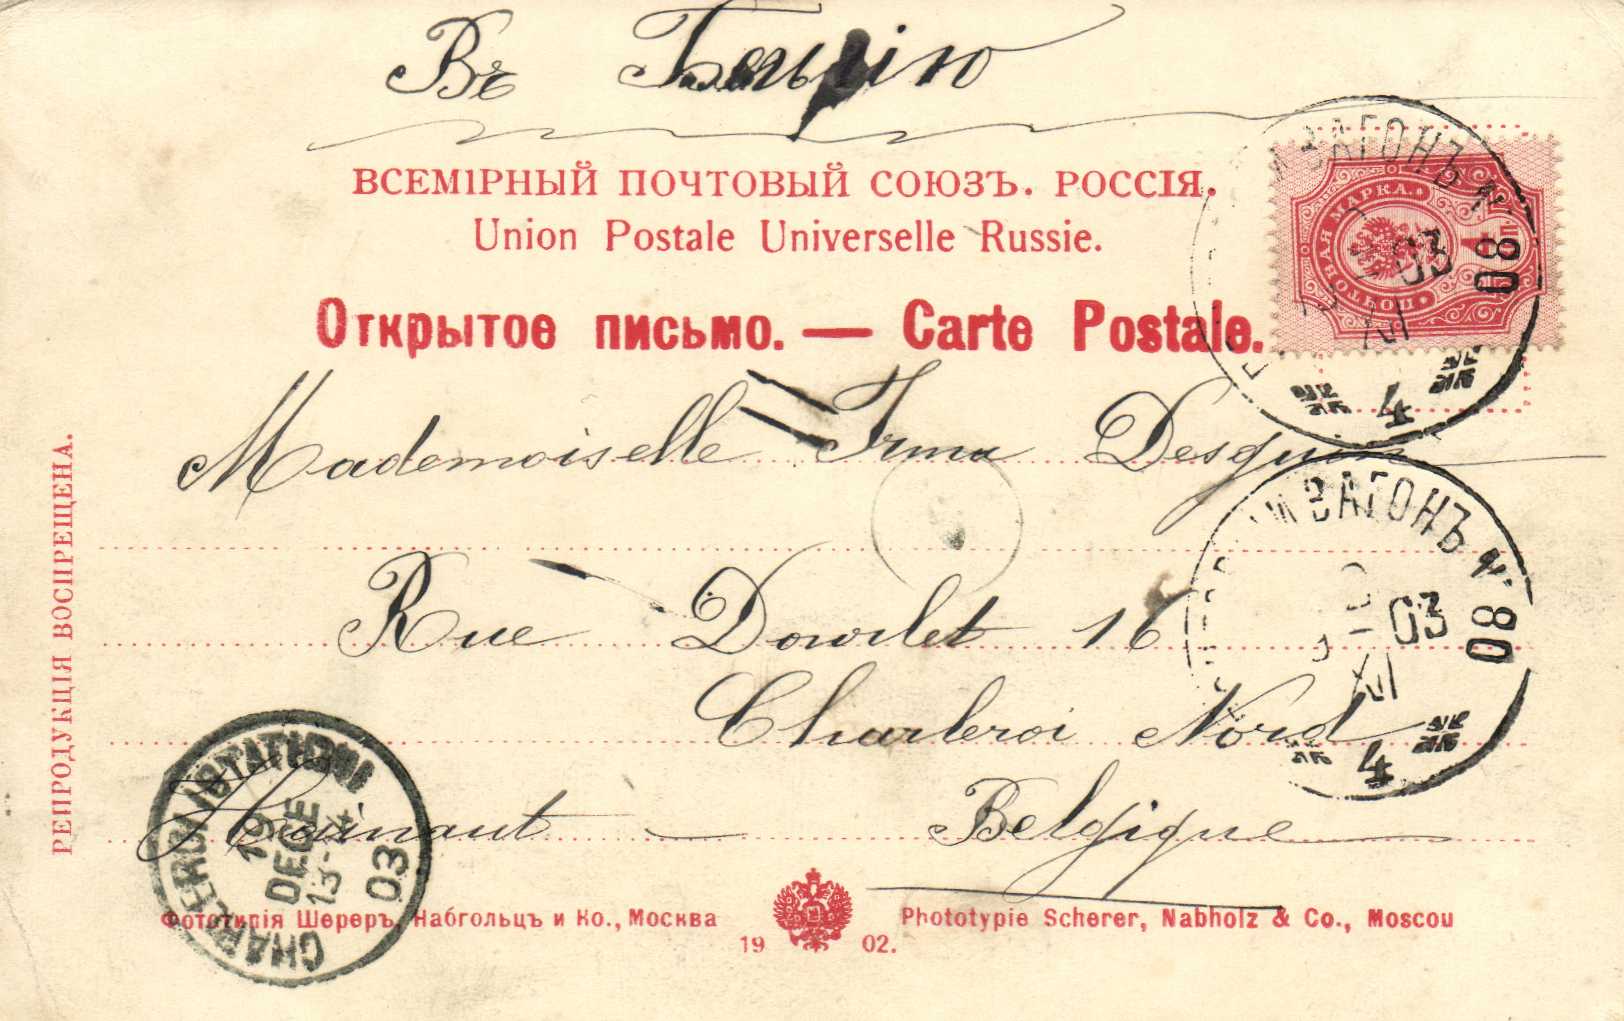 Въ Бельгію
ВСЕМІРНЫЙ ПОЧТОВЫЙ СОЮЗЪ. РОССІЯ.
Union Postale Universelle Russie.
Открытое письмо. — Carte Postale.
ПОЧТОВАЯ МАРКА.
ВАГОНЪ № 80
03
4
Mademoiselle Irma Desguin
ВАГОНЪ № 80
03
4
Rue Dourlet 16
Charleroi Nord
Hainaut — Belgique
РЕПРОДУКЦІЯ ВОСПРЕЩЕНА.
CHARLEROI (STATION)
19
DECE
13-14
03
Фототипія Шереръ, Набгольцъ и Ко., Москва
1902.
Phototypie Scherer, Nabholz & Co., Moscou